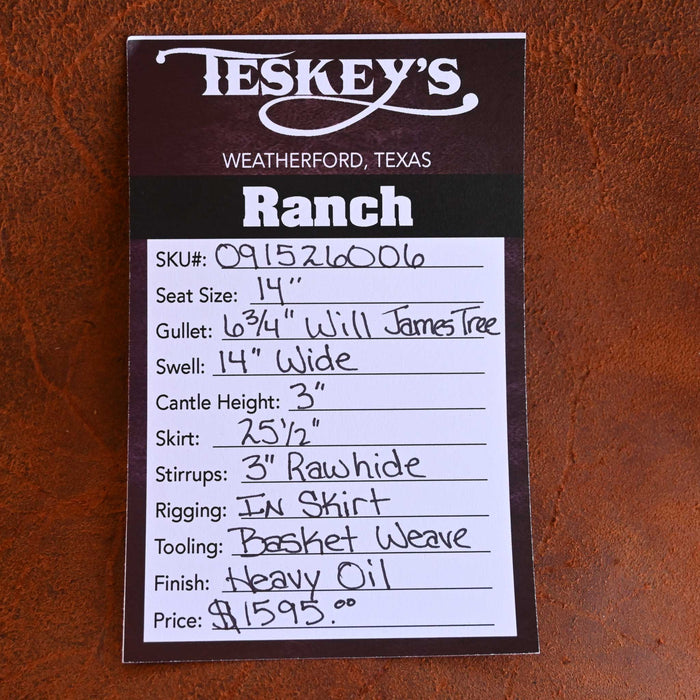 TESKEY'S
WEATHERFORD, TEXAS
Ranch
SKU#: 091526006
Seat Size: 14"
Gullet: 6 3/4" Will James Tree
Swell: 14" Wide
Cantle Height: 3"
Skirt: 25 1/2"
Stirrups: 3" Rawhide
Rigging: In Skirt
Tooling: Basket Weave
Finish: Heavy Oil
Price: $1595.00